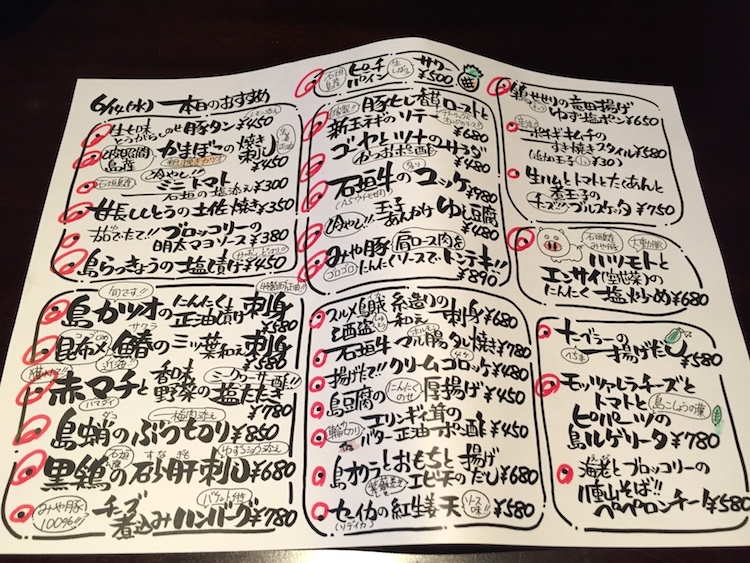 6/14(水) 本日のおすすめ
生七味
とうがらしのせ 豚タン ¥450
かまぼこの焼き
刺し ¥450
石垣島産
冷やし!! ミニトマト
石垣の塩添え ¥300
甘長ししとうの土佐焼き ¥350
茹でたて!! ブロッコリーの
明太マヨソース ¥380
島らっきょうの塩漬け ¥450
旬です!!
島カツオのにんにく
正油漬け 刺身
¥580
昆布〆 鰆の三ッ葉和え 刺身
サワラ
¥580
赤マチと香味
野菜の塩たたき
ハマダイ
シークワーサー酢!!
¥780
島蛸のぶつ切り ¥850
黒鶏の砂肝刺し ¥680
すなぎも
みやざき豚
100%!!
チーズ
煮込みハンバーグ ¥780
バゲット付き
石垣島産
ピーチ
パイン
生しぼり
サワー
¥500
豚ヒレ香草ロースト
新玉ネギのソテー
¥680
ゴーヤとツナのサラダ
¥480
石垣牛のコロッケ ¥980
冷やし!! 玉子
あんかけ ゆし豆腐
¥480
みやざき豚 肩ロース肉を
ゴロゴロ
にんにくソースでトンテキ!!
¥890
スルメ島賊
と酒盗 糸造りの
和え 刺身 ¥680
石垣牛 マル腸 タレ焼き ¥780
揚げたて!! クリームコロッケ ¥480
島豆腐の にんにく
のせ 厚揚げ ¥450
輪切り
エリンギ茸の
バター正油ポン酢 ¥450
島オクラとおもちと揚げ
エビ天のだし ¥680
セイイカの紅生姜天 ¥580
(ソデイカ)
ソース
味!!
鶏せせりの竜田揚げ
ゆず塩ポン ¥650
ネギキムチの
すき焼きスタイル ¥580
(追加玉子 ¥30)
生ハムとトマトとたくあんと
煮玉子の
チーズ!! ブルスケッタ ¥750
石垣島産
みやざき豚
大動脈
ハツモトと
エンサイ(空芯菜)の
にんにく 塩炒め ¥680
ナーベラーの
へちま
揚げだし ¥580
モッツァレラチーズと
トマトと
島こしょうの葉
ピパーツの
島マルゲリータ ¥780
海老とブロッコリーの
八重山そば!!
ペペロンチーノ ¥580